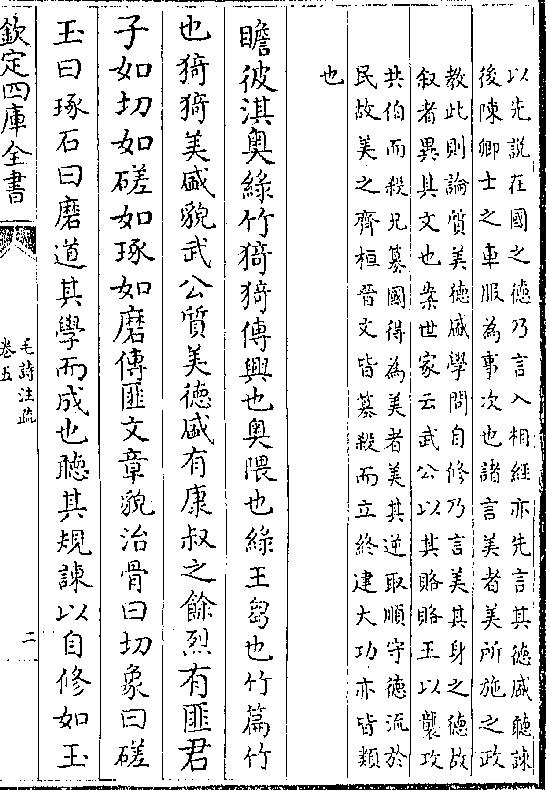 以先説在國之徳乃言入相經亦先言其徳盛聽諫
後陳卿士之車服為事次也諸言美者美所施之政
教此則論質美徳盛學問自修乃言美其身之徳故
叙者異其文也案世家云武公以其賂賂王以襲攻
共伯而殺兄簒國得為美者美其逆取順守徳流於
民故美之齊桓晉文皆簒殺而立終建大功亦皆類
也
瞻彼淇奥綠竹猗猗傳興也奥隈也綠王芻也竹篇竹
也猗猗美盛貌武公質美徳盛有康叔之餘烈有匪君
子如切如磋如琢如磨傳匪文章貌治骨曰切象曰磋
玉曰琢石曰磨道其學而成也聽其規諫以自修如玉
欽定四庫全書
毛詩注疏
卷五
二